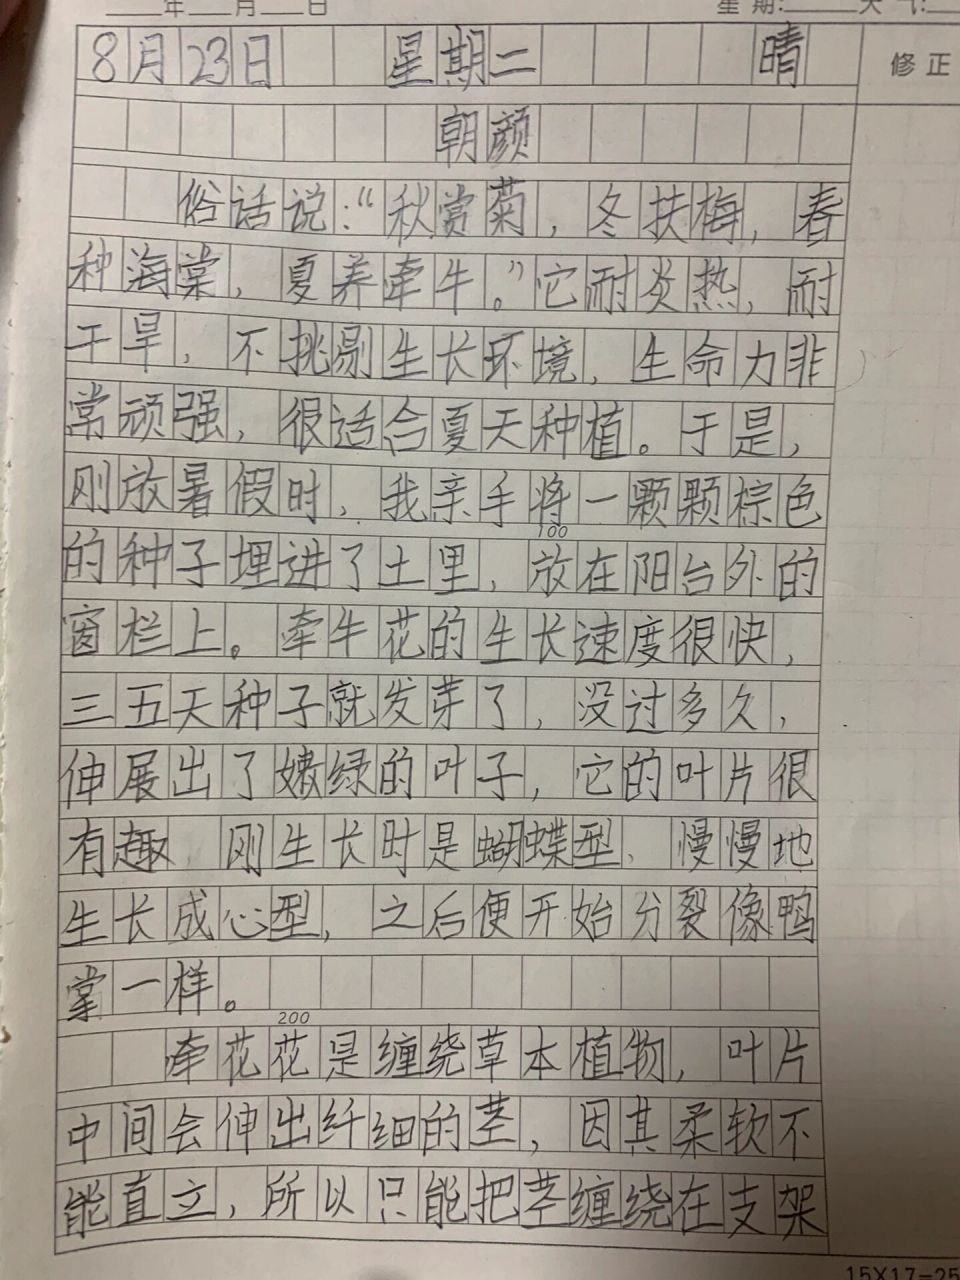 年 月 日 星期: 天气:
8月23日 星期二 晴
修正
朝颜
俗话说:“秋赏菊,冬扶梅,春
种海棠,夏养牵牛。”它耐炎热,耐
干旱,不挑剔生长环境,生命力非
常顽强,很适合夏天种植。于是,
刚放暑假时,我亲手将一颗颗棕色
100
的种子埋进了土里,放在阳台外的
窗栏上。牵牛花的生长速度很快,
三五天种子就发芽了,没过多久,
伸展出了嫩绿的叶子,它的叶片很
有趣,刚生长时是蝴蝶型,慢慢地
生长成心型,之后便开始分裂像鸭
掌一样。
200
牵花花是缠绕草本植物,叶片
中间会伸出纤细的茎,因其柔软不
能直立,所以只能把茎缠绕在支架
15X17=25